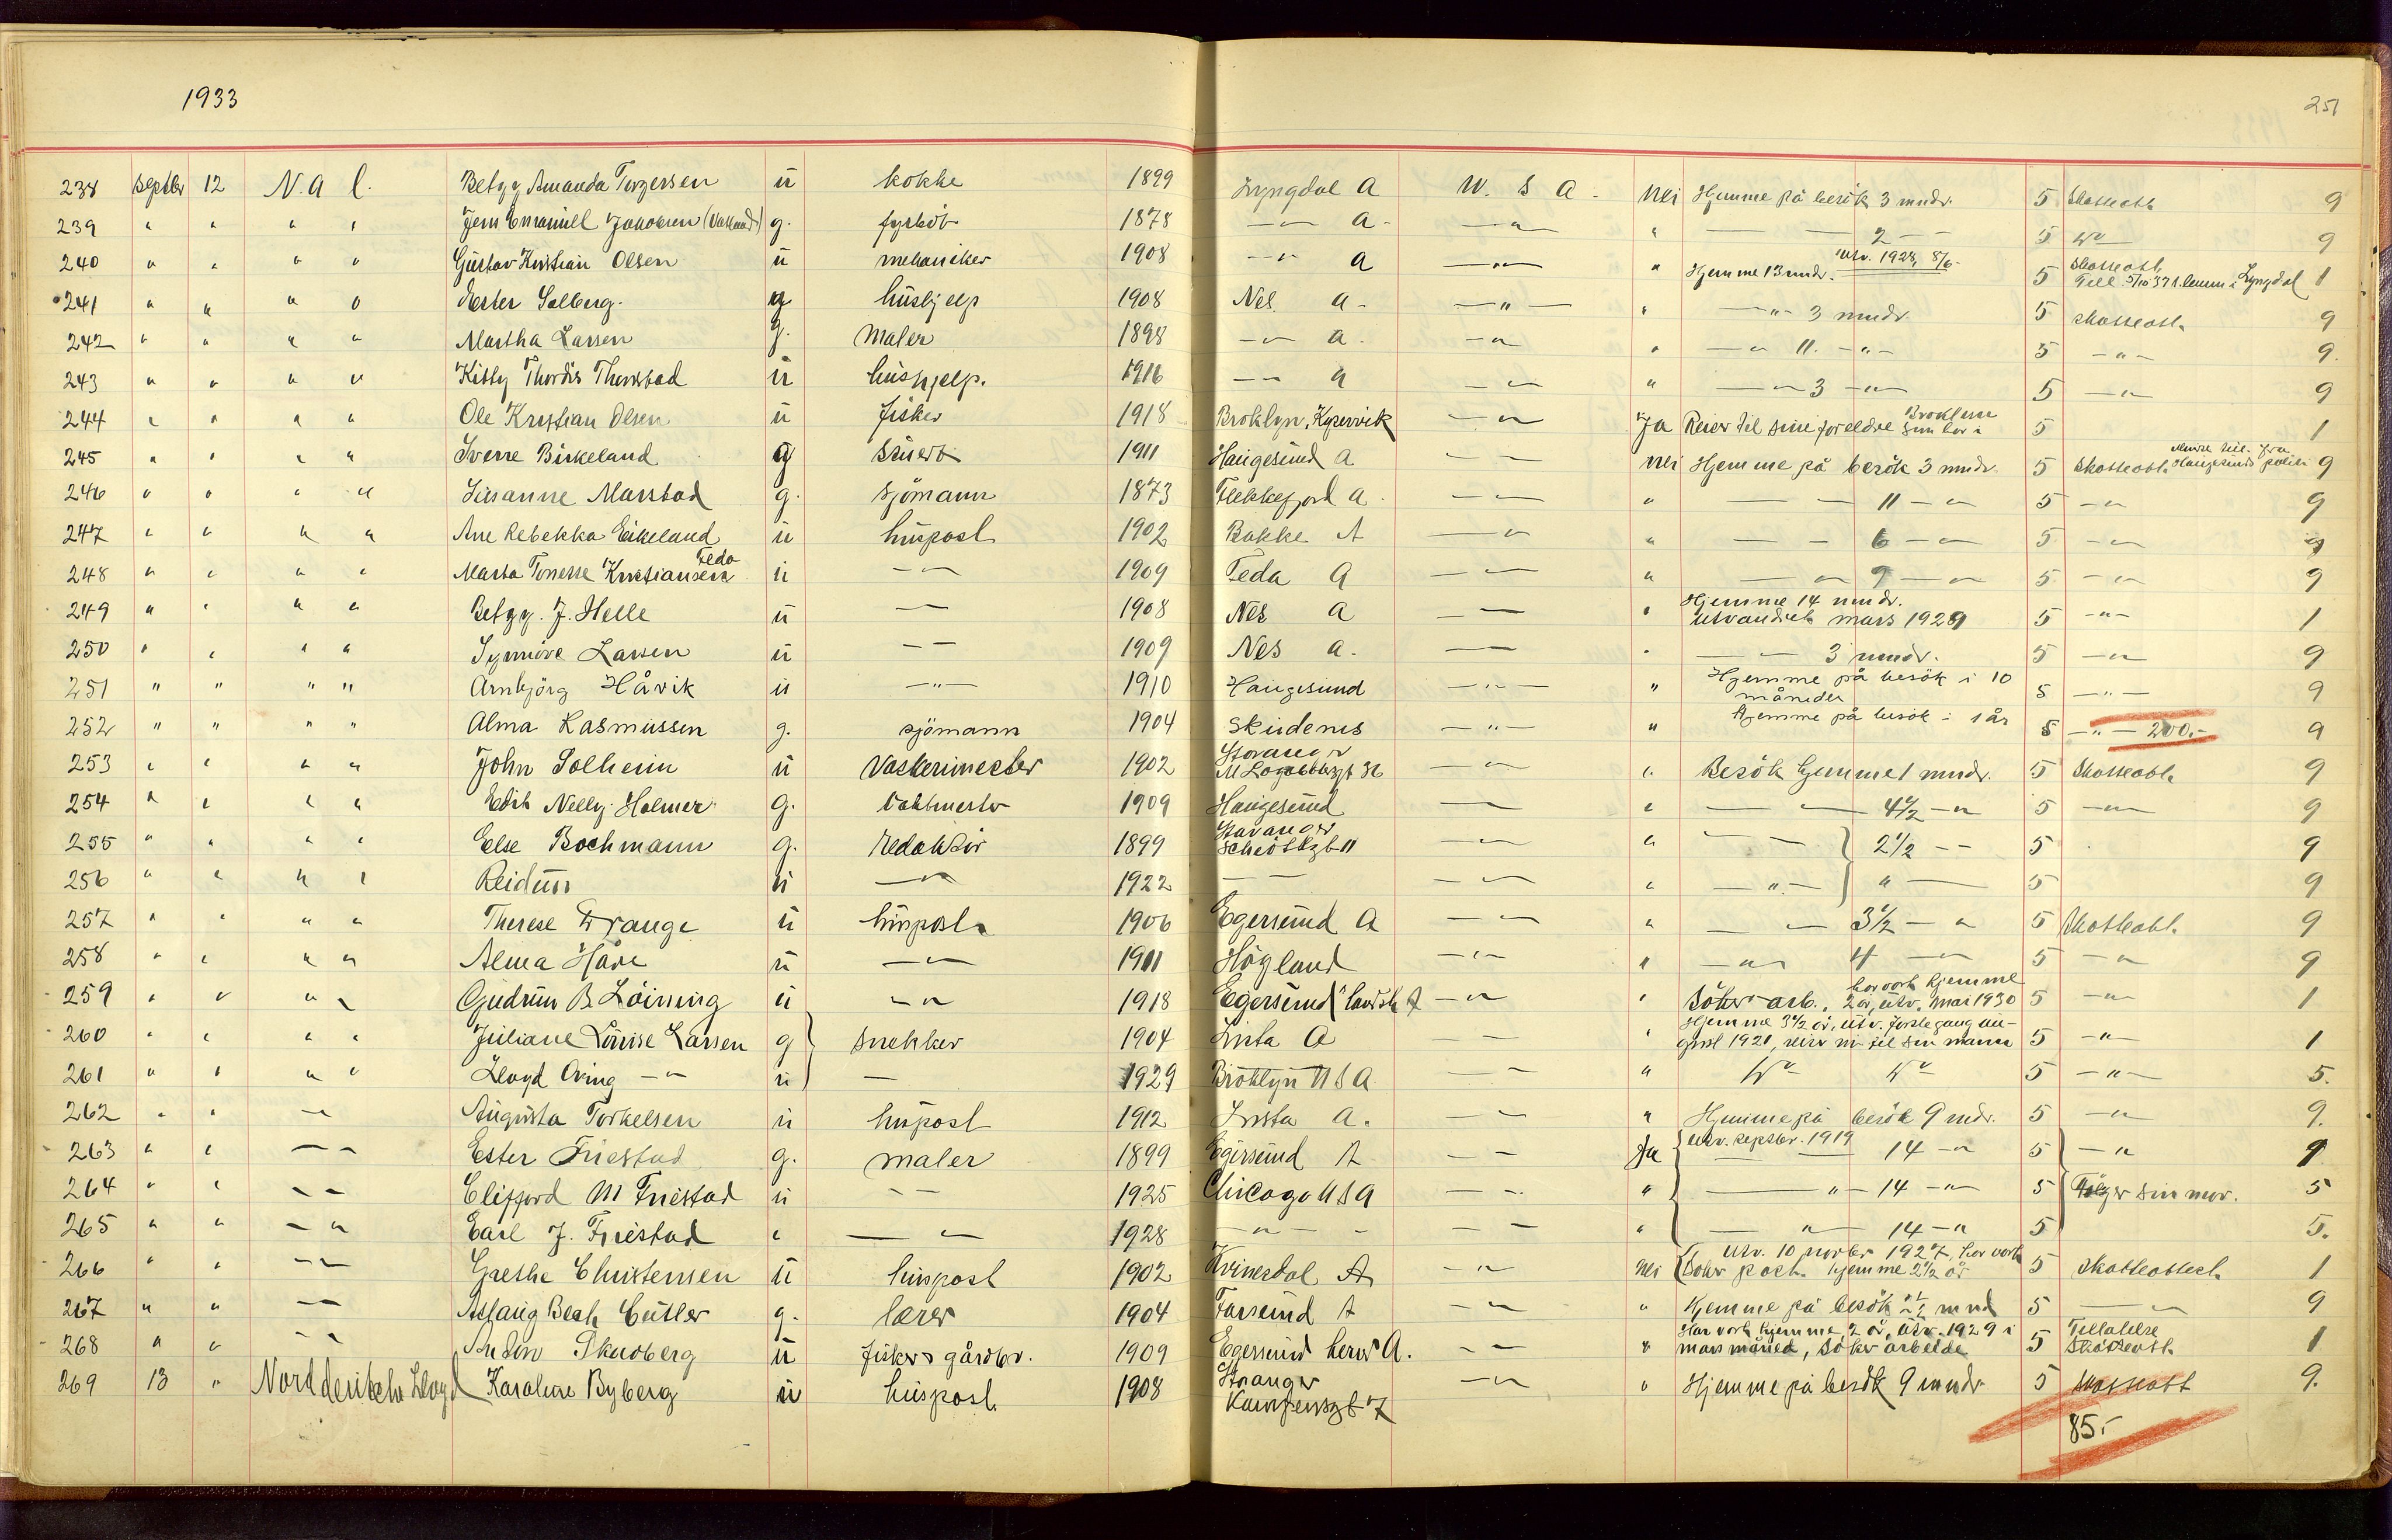 1933
251
238 Septbr 12 N. A. L. Betzy Amanda Torgersen ü kokke 1899 Lyngdal A U. S. A. Nei Hjemme på besök 3 mndr. 5 Skatteatt. 9
239 " " " " Jens Emanuel Jakobsen g. fyrböt 1878 — " — A. — " — " — — 2 — — 5 Do 9
240 " " " " Gustav Kristian Olsen ü mekaniker 1908 — " — A — " — " Hjemme 13 mndr. utv. 1928, 8/6. 5 Skatteatt. Till. 5/10 32 l. i Lyngdal 1
241 " " " " Ester Solberg. g hushjelp 1908 Nes. A. — " — " — " — 3 mndr. 5 Skatteatt. 9
242 " " " " Martha Larsen g. Maler 1898 — " — A. — " — " — " 11. — " — 5 — " — 9.
243 " " " " Kitty Thordis ü hushjelp. 1916 — — A — " — " — " — 3 — " — 5 — " — 9
244 " " " " Ole Kristian Olsen ü fisker 1918 Broklyn, — " — Ja Reiser til sine foreldre som bor i Brooklyn 5 1
245 " " " " Sverre Birkeland g Stuert 1911 Haugesund A — — Nei Hjemme på besök 3 mndr. 5 Skatteatt. fra Haugesunds politi 9
246 " " " " Susanne Marstad g. Sjömann 1873 Flekkefjord A. — — " — — 11 — " 5 — " 9
247 " " " " Ane Rebekka Eikeland ü huspost 1902 Bakke A — " — " — — 6 — " 5 — " — 9
248 " " " " Marta Tonette Kristiansen Feda ü — " — 1909 Feda A — " — " — " — 9 — " 5 — " — 9
249 " " " " Betzy. J. Helle ü — " — 1908 Nes A — — " Hjemme 14 mndr. Utvandret mars 1929 5 — " — 1
250 " " " " Synnöve Larsen ü — — 1909 Nes A. — — " — — 3 mndr. 5 — " — 9
251 " " " " Arnbjörg Håvik ü — " — 1910 Haugesund — " — " Hjemme på besök i 10 måneder 5 — " — 9
252 " " " " Alma Rasmussen g. sjömann 1904 Skudenes — " — " Hjemme på besök i 1 år 5 — " — 200.- 9
253 " " " " John Solheim ü Vaskerimester 1902 Stavanger 36 — " — " Besök hjemme 1 mndr. 5 Skatteatt. 9
254 " " " " Edith Nelly Holmer g. Vaktmester 1909 Haugesund — — " — — 4½ — " 5 — " — 9
255 " " " " Else Bochmann g. Redaktör 1899 Stavanger 11 — " — " — — 2½ — — 5 9
256 " " " " Reidun ü — " — 1922 — — — " — " — " — " — 5 9
257 " " " " Therese Drange ü huspost 1906 Egersund A — " — " — — 3½ — " 5 Skatteatt. 9
258 " " " " Alma Håve ü — " — 1911 Högland — " — " — " — 4 — " — 5 — " 9
259 " " " " Gudrun B. Löining ü — " 1918 Egersund landsk A — " " Söker arb., har vært hjemme 2 år, utv. Mai 1930 5 — " — 1
260 " " " " Juliane Louise Larsen g Snekker 1904 Lista A — — " Hjemme 3½ år, utv. förste gang august 1920, reiser nu til sin mann 5 — " — 1
261 " " " " Lloyd — " ü — 1929 Broklyn U S A — — " Do Do 5 — " — 5.
262 " " — " Augusta Torkelsen ü huspost 1912 Lista A. — " — " Hjemme på besök 9 mdr. 5 — " 9.
263 " " — — Ester Friestad g. maler 1899 Egersund A — — Ja utv. septbr. 1919 14 — " 5 — " 9
264 " " — — Clifford M Friestad ü — — 1925 Chicago U S A — — " — " — 14 — " 5 Fölger sin mor. 5
265 " " — " Earl J. Friestad " — — 1928 — " — — — — " — " — 14 — " 5 5.
266 " " — — Grethe Christensen ü huspost 1902 Kvinesdal A — " Nei utv. 10 novbr 1927, har vært hjemme 2½ år Söker post. 5 Skatteattest. 1
267 " " — — Aslaug Bech Cutler g. lærer 1904 Farsund A — " — " Hjemme på besök 2½ mnd 5 — " 9
268 " " — " Skudberg ü fisker & gårdbr. 1909 Egersund herred A. — — " Har vært hjemme, 2 år, utv. 1929 i mars måned, söker arbeide 5 Tillatelse Skatteatt. 1
269 13 " Norddeutsche Lloyd Karoline Byberg ü huspost. 1908 Stvanger 7 — " " Hjemme på besök 9 mndr 5 Skatteatt 9.
85.-